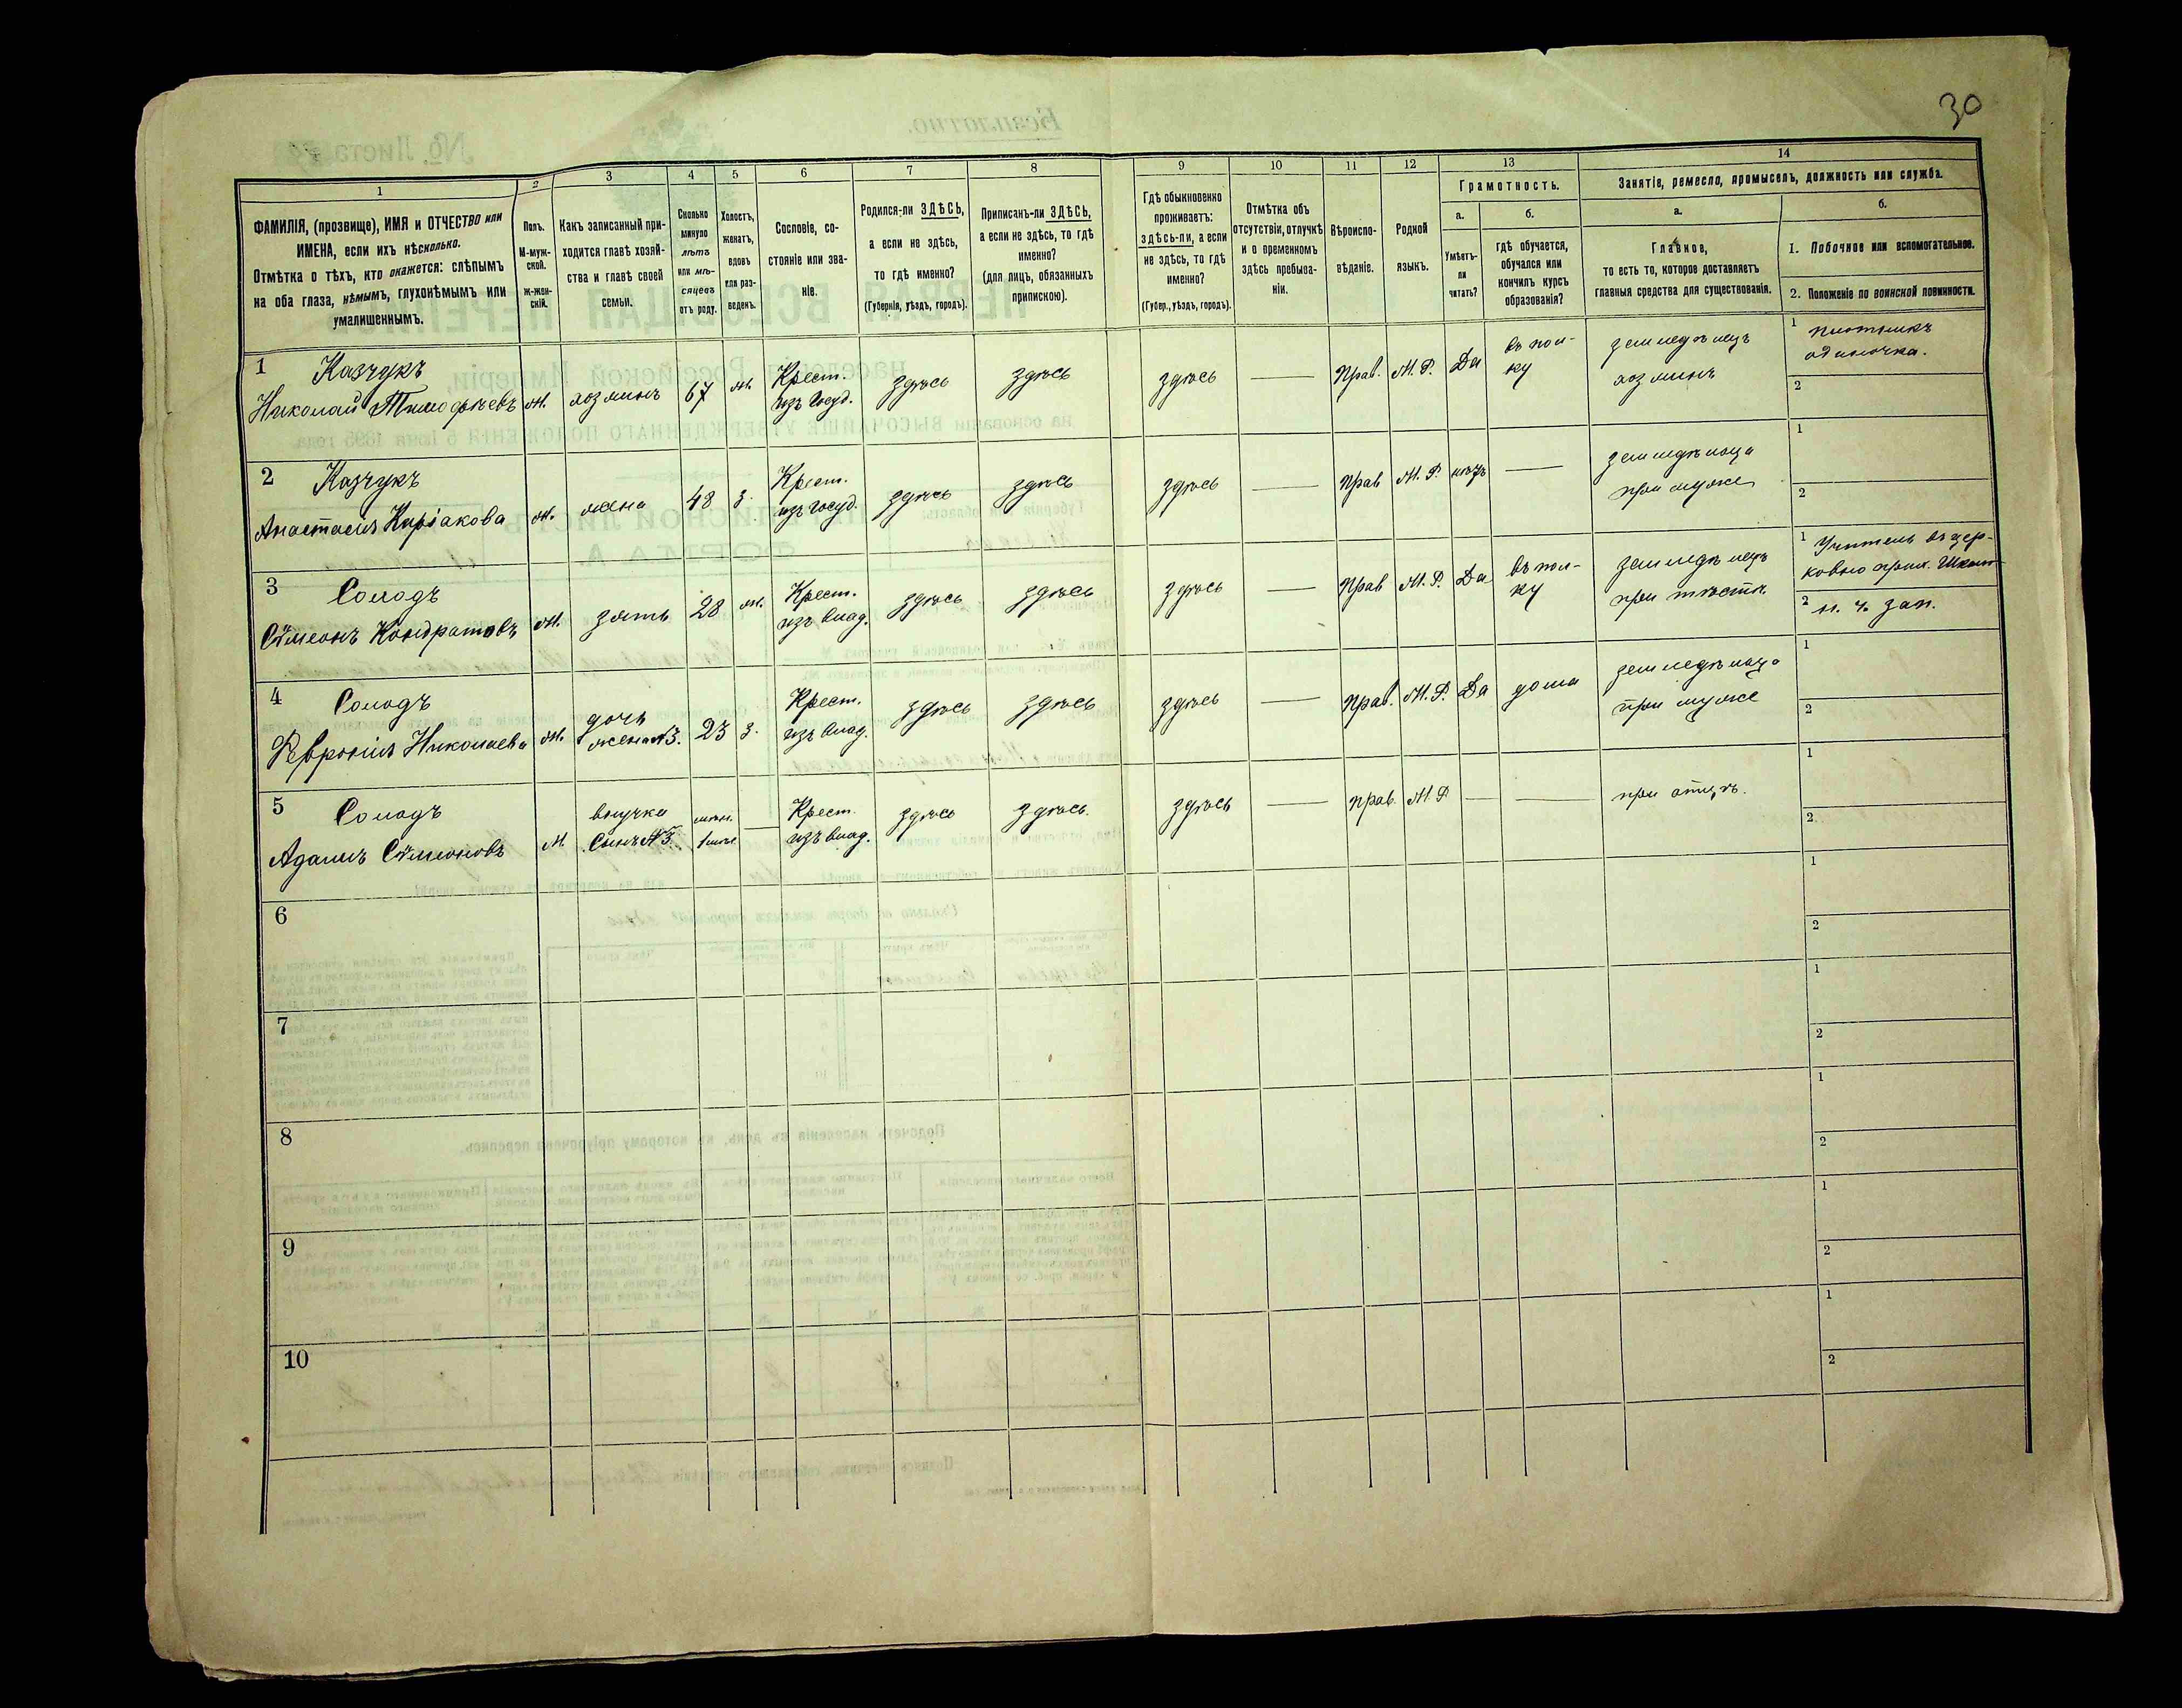 30
1
2
3
4
5
6
7
8
9
10
11
12
13
14
ФАМИЛІЯ, (прозвище), ИМЯ и ОТЧЕСТВО или
ИМЕНА, если ихъ нѣсколько.
Отмѣтка о тѣхъ, кто окажется: слѣпымъ
на оба глаза, нѣмымъ, глухонѣмымъ или
умалишеннымъ.
Полъ.
М-муж-
ской.
ж-жен-
скій.
Какъ записанный при-
ходится главѣ хозяй-
ства и главѣ своей
семьи.
Сколько
минуло
лѣтъ
или мѣ-
сяцевъ
отъ роду.
Холостъ,
женатъ,
вдовъ
или раз-
веденъ.
Сословіе, со-
стояніе или зва-
ніе.
Родился-ли ЗДѢСЬ,
а если не здѣсь,
то гдѣ именно?
(Губернія, уѣздъ, городъ).
Приписанъ-ли ЗДѢСЬ,
а если не здѣсь, то гдѣ
именно?
(для лицъ, обязанныхъ
припискою).
Гдѣ обыкновенно
проживаетъ:
здѣсь-ли, а если
не здѣсь, то гдѣ
именно?
(Губер., уѣздъ, городъ).
Отмѣтка объ
отсутствіи, отлучкѣ
и о временномъ
здѣсь пребыва-
ніи.
Вѣроиспо-
вѣданіе.
Родной
языкъ.
Грамотность.
а.
Умѣетъ-
ли
читать?
б.
гдѣ обучается,
обучался или
кончилъ курсъ
образованія?
Занятіе, ремесло, промыселъ, должность или служба.
а.
Главное,
то есть то, которое доставляетъ
главныя средства для существованія.
б.
1. Побочное или вспомогательное.
2. Положеніе по воинской повинности.
1 Казчукъ
Николай Тимофѣевъ м. хозяинъ 67 ж. Крест. изъ госуд. здѣсь здѣсь здѣсь — Прав. М.Р. Да въ пол-
ку земледѣлецъ
хозяинъ
1 плотникъ
одиночка.
2
2 Казчукъ
Анастасія Киріакова ж. жена 48 з. Крест. изъ госуд. здѣсь здѣсь здѣсь — Прав М.Р. нѣтъ — земледѣлица
при мужѣ
1
2
3 Солодъ
Сѵмеонъ Кондратовъ м. зять 28 ж. Крест. изъ влад. здѣсь здѣсь здѣсь — Прав М.Р. Да въ пол-
ку земледѣлецъ
при тестѣ
1 Учитель въ цер-
ковно прих.
2 н. ч. зап.
4 Солодъ
Февронія Николаева ж. дочь
жена №3. 23 з. Крест. изъ влад. здѣсь здѣсь здѣсь — Прав. М.Р. Да дома земледѣлица
при мужѣ
1
2
5 Солодъ
Адамъ Сѵмеоновъ м. внучка
сынъ №3. — Крест. изъ влад. здѣсь здѣсь. здѣсь — прав. М.Р — — при отцѣ.
1
2
6
1
2
7
1
2
8
1
2
9
1
2
10
1
2